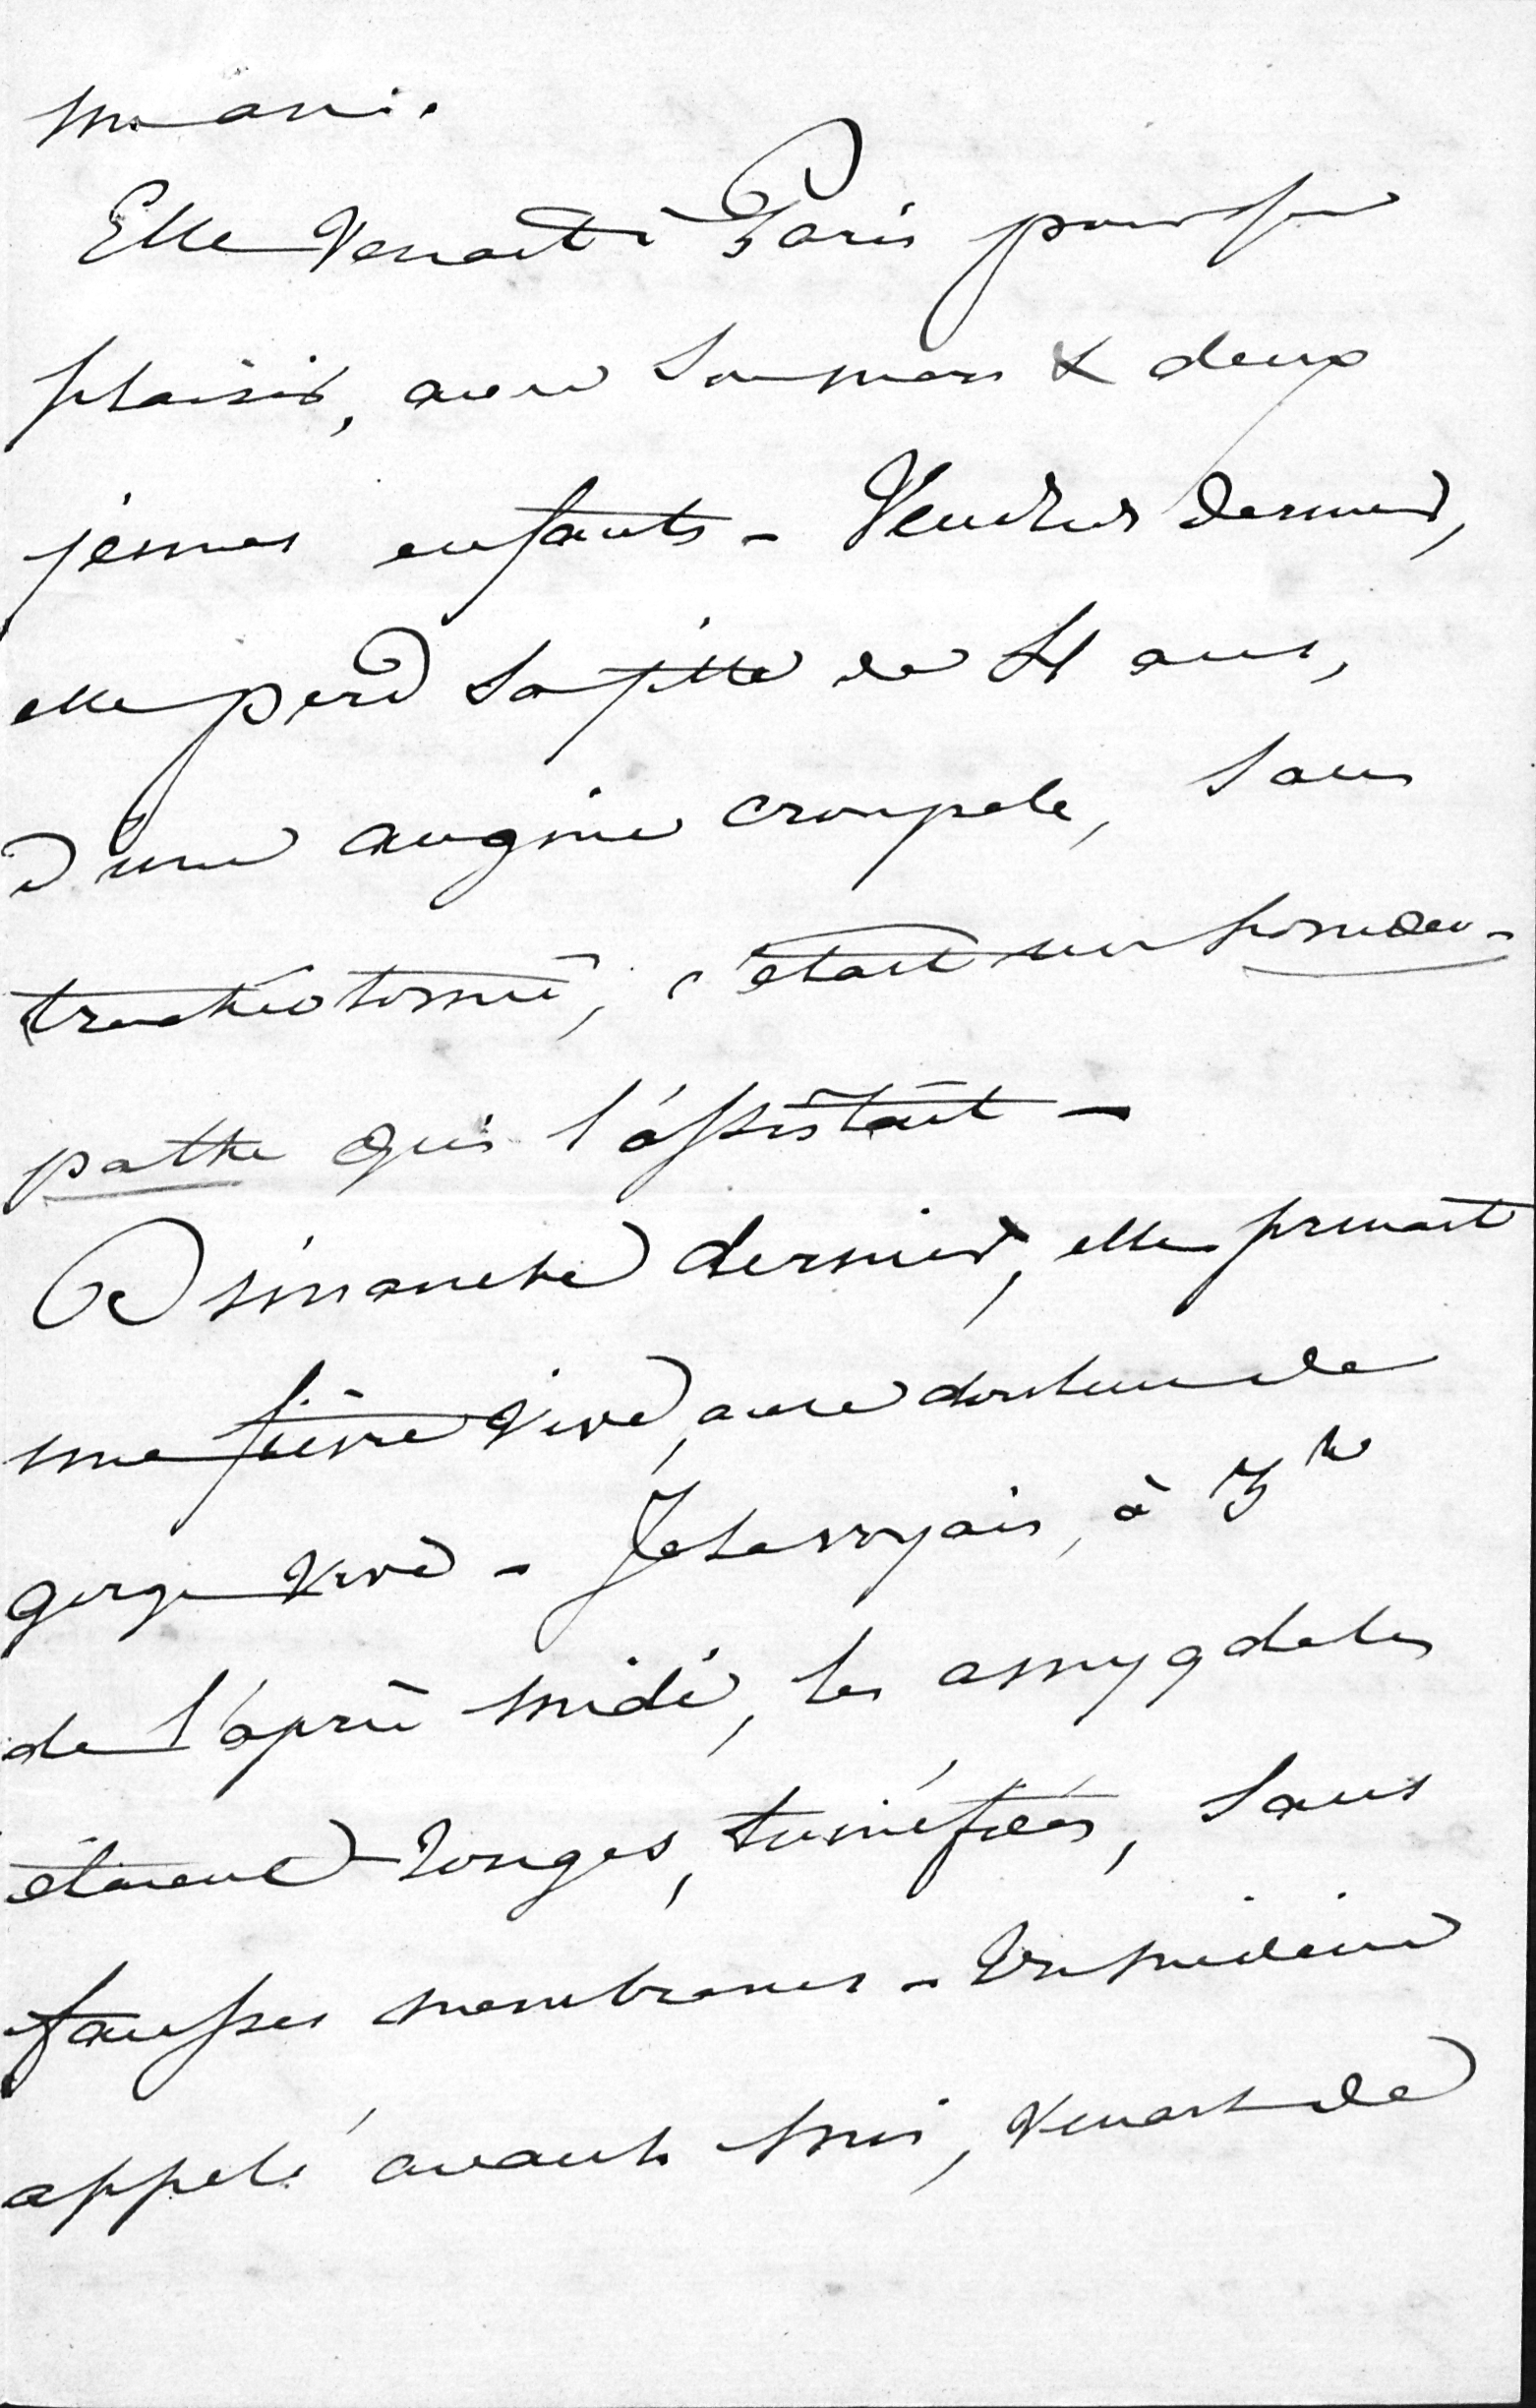 mari.
Elle venait à Paris pour son
plaisir, avec son mari & deux
jeunes enfants – Vendredi dernier,
elle perd sa fille de 4 ans,
d'une angine croupale, sans
trachéotomie, c'était un homœo-
pathe qui l'assistait –
Dimanche dernier, elle prenait
une fièvre vive, avec douleur de
gorge vive – Je la voyais, à 3h
de l'après midi, les amygdales
étaient rouges, tuméfiées, sans
fausses membranes – Un médecin
appelé avant moi, venait de